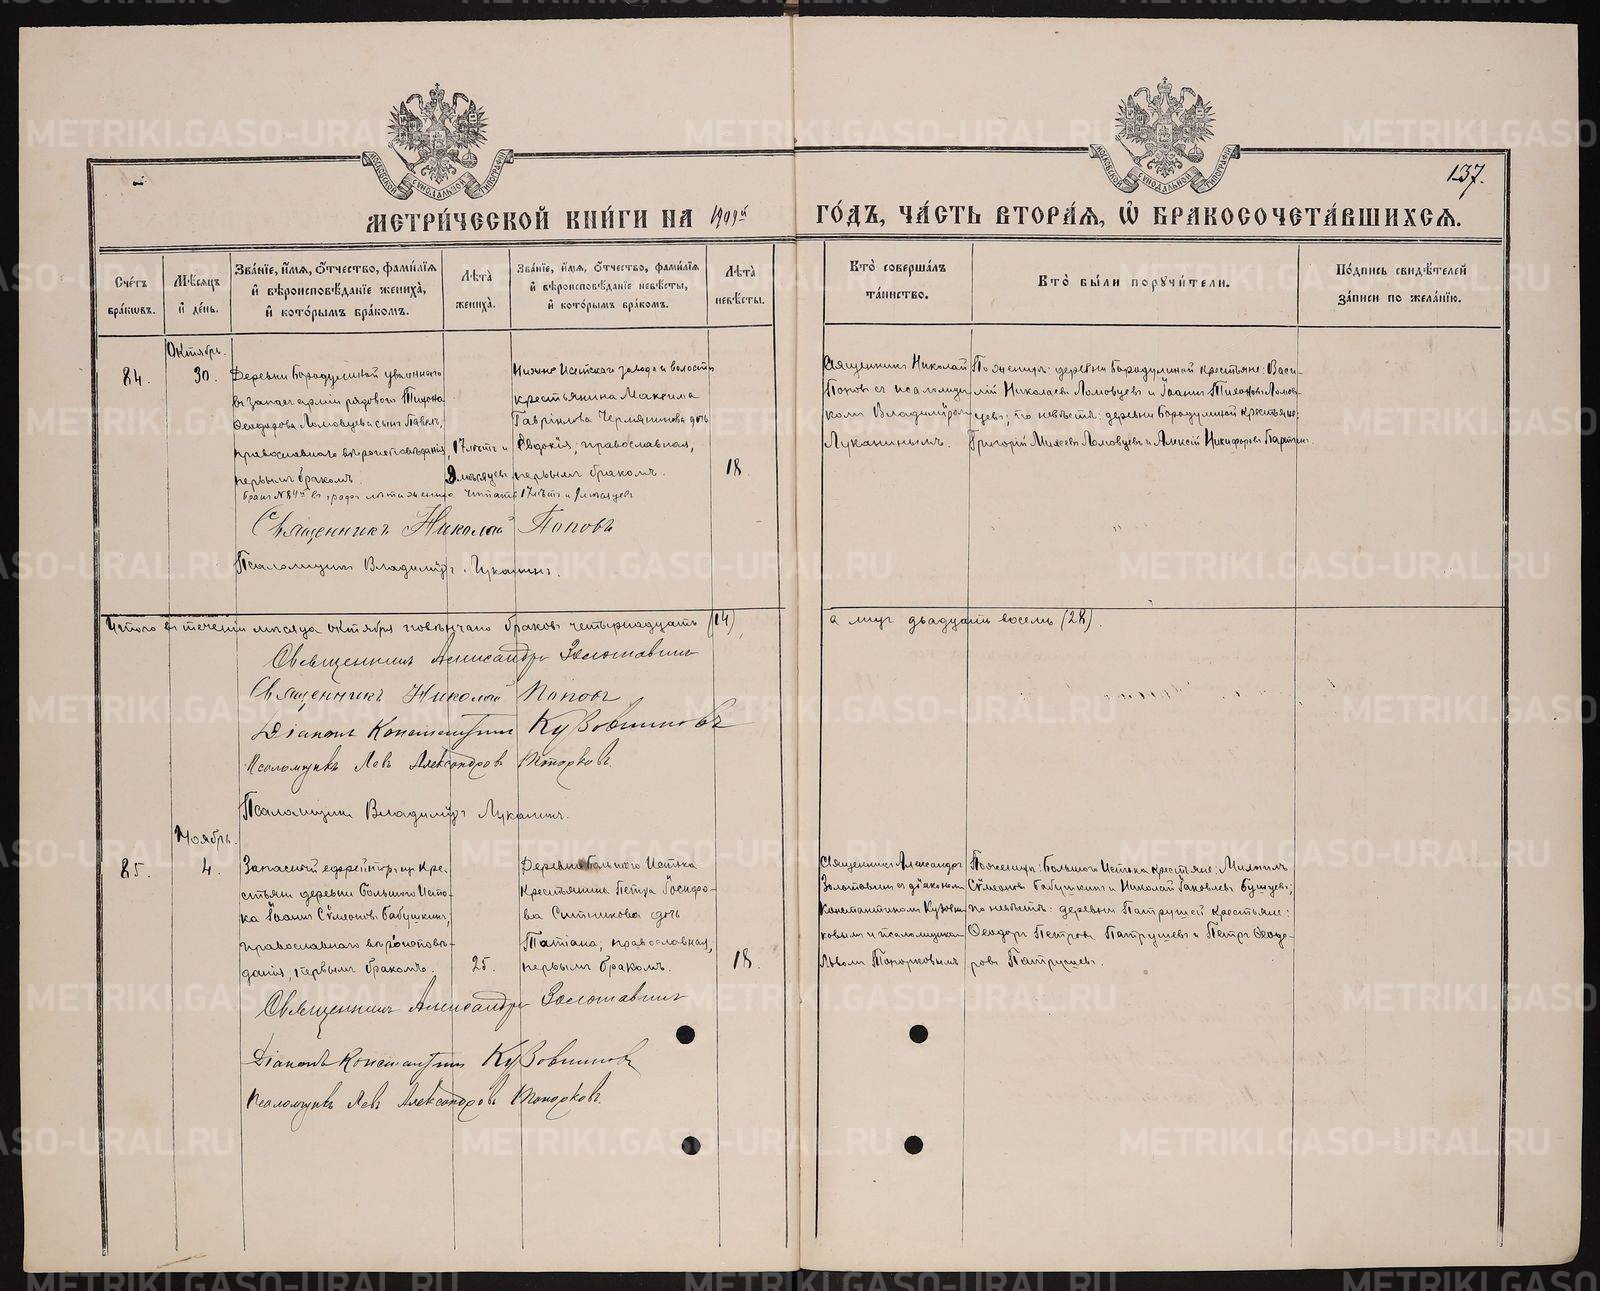 137.
МЕТРИ́ЧЕСКОЙ КНИ́ГИ НА 1909й ГО́ДЪ, ЧА́СТЬ ВТОРА́Я, Ѿ БРАКОСОЧЕТА́ВШИХСЯ.
Сче́тъ бра́ковъ.
Мѣ́сяцъ и де́нь.
Зва́нїе, и́мя, о́тчество, фами́лїя
и вѣроисповѣ́данїе жениха̀,
и кото́рымъ бра́комъ.
Лѣта̀ жениха̀.
Зва́нїе, и́мя, о́тчество, фами́лїя
и вѣроисповѣ́данїе невѣ́сты,
и кото́рымъ бра́комъ.
Лѣта̀ невѣ́сты.
Кто̀ соверша́лъ та́инство.
Кто̀ бы́ли поручи́тели.
По́дпись свидѣ́телей за́писи по жела́нїю.
84.
Октябрь.
30.
Деревни Бородулиной уволеннаго
въ запасъ армiи рядового Тихона
Ѳеодорова Ломовцева сынъ Павелъ,
православнаго вѣроисповѣданiя,
первымъ бракомъ.
17 лѣтъ и
9 мѣсяцевъ
Нижне Исетскаго завода и волости
крестьянина Максима
Гаврiилова Чермянинова дочь
Евдокiя, православная,
первымъ бракомъ.
18
Священникъ Николай
Поповъ съ псаломщи-
комъ Владимiромъ
Луканинымъ.
По женихѣ: деревни Бородулиной крестьяне: Васи-
лiй Николаевъ Ломовцевъ и Iоаннъ Тихоновъ Ломов-
цевъ; по невѣстѣ: деревни Бородулиной крестьяне:
Григорiй Михеевъ Ломовцевъ и Алексiй Никифоровъ
Бракъ №84й въ графѣ лѣта жениха читать 17 лѣтъ и 9 мѣсяцевъ
Священникъ Николай Поповъ
Псаломщикъ Владимiръ Луканинъ.
Итого въ теченiи мѣсяца октября повѣнчано браковъ четырнадцать (14),
а лицъ двадцать восемь (28).
Священникъ Александръ Золотавинъ
Священникъ Николай Поповъ
Дiаконъ Константинъ Кузовниковъ
Псаломщикъ Левъ Александровъ Топорковъ.
Псаломщикъ Владимiръ Луканинъ.
85.
Ноябрь.
4.
Запасной ефрейторъ, изъ кре-
стьянъ деревни Большого Исто-
ка Iоаннъ Сѵмеоновъ Бабушкинъ,
православнаго вѣроисповѣ-
данiя, первымъ бракомъ.
25.
Деревни Большого Истока
крестьянина Петра Iосифо-
ва Ситникова дочь
Татiана, православная,
первымъ бракомъ.
18.
Священникъ Александръ
Золотавинъ съ дiакономъ
Константиномъ Кузовни-
ковымъ и псаломщикомъ
Львомъ Топорковымъ
По женихѣ: Большого Истока крестьяне: Михаилъ
Сѵмеоновъ Бабушкинъ и Николай Iаковлевъ Бушуевъ;
по невѣстѣ: деревни Патрушей крестьяне:
Ѳеодоръ Петровъ Патрушевъ и Петръ Ѳеодо-
ровъ Патрушевъ.
Священникъ Александръ Золотавинъ
Дiаконъ Константинъ Кузовниковъ
Псаломщикъ Левъ Александровъ Топорковъ.
METRIKI.GASO-URAL.RU